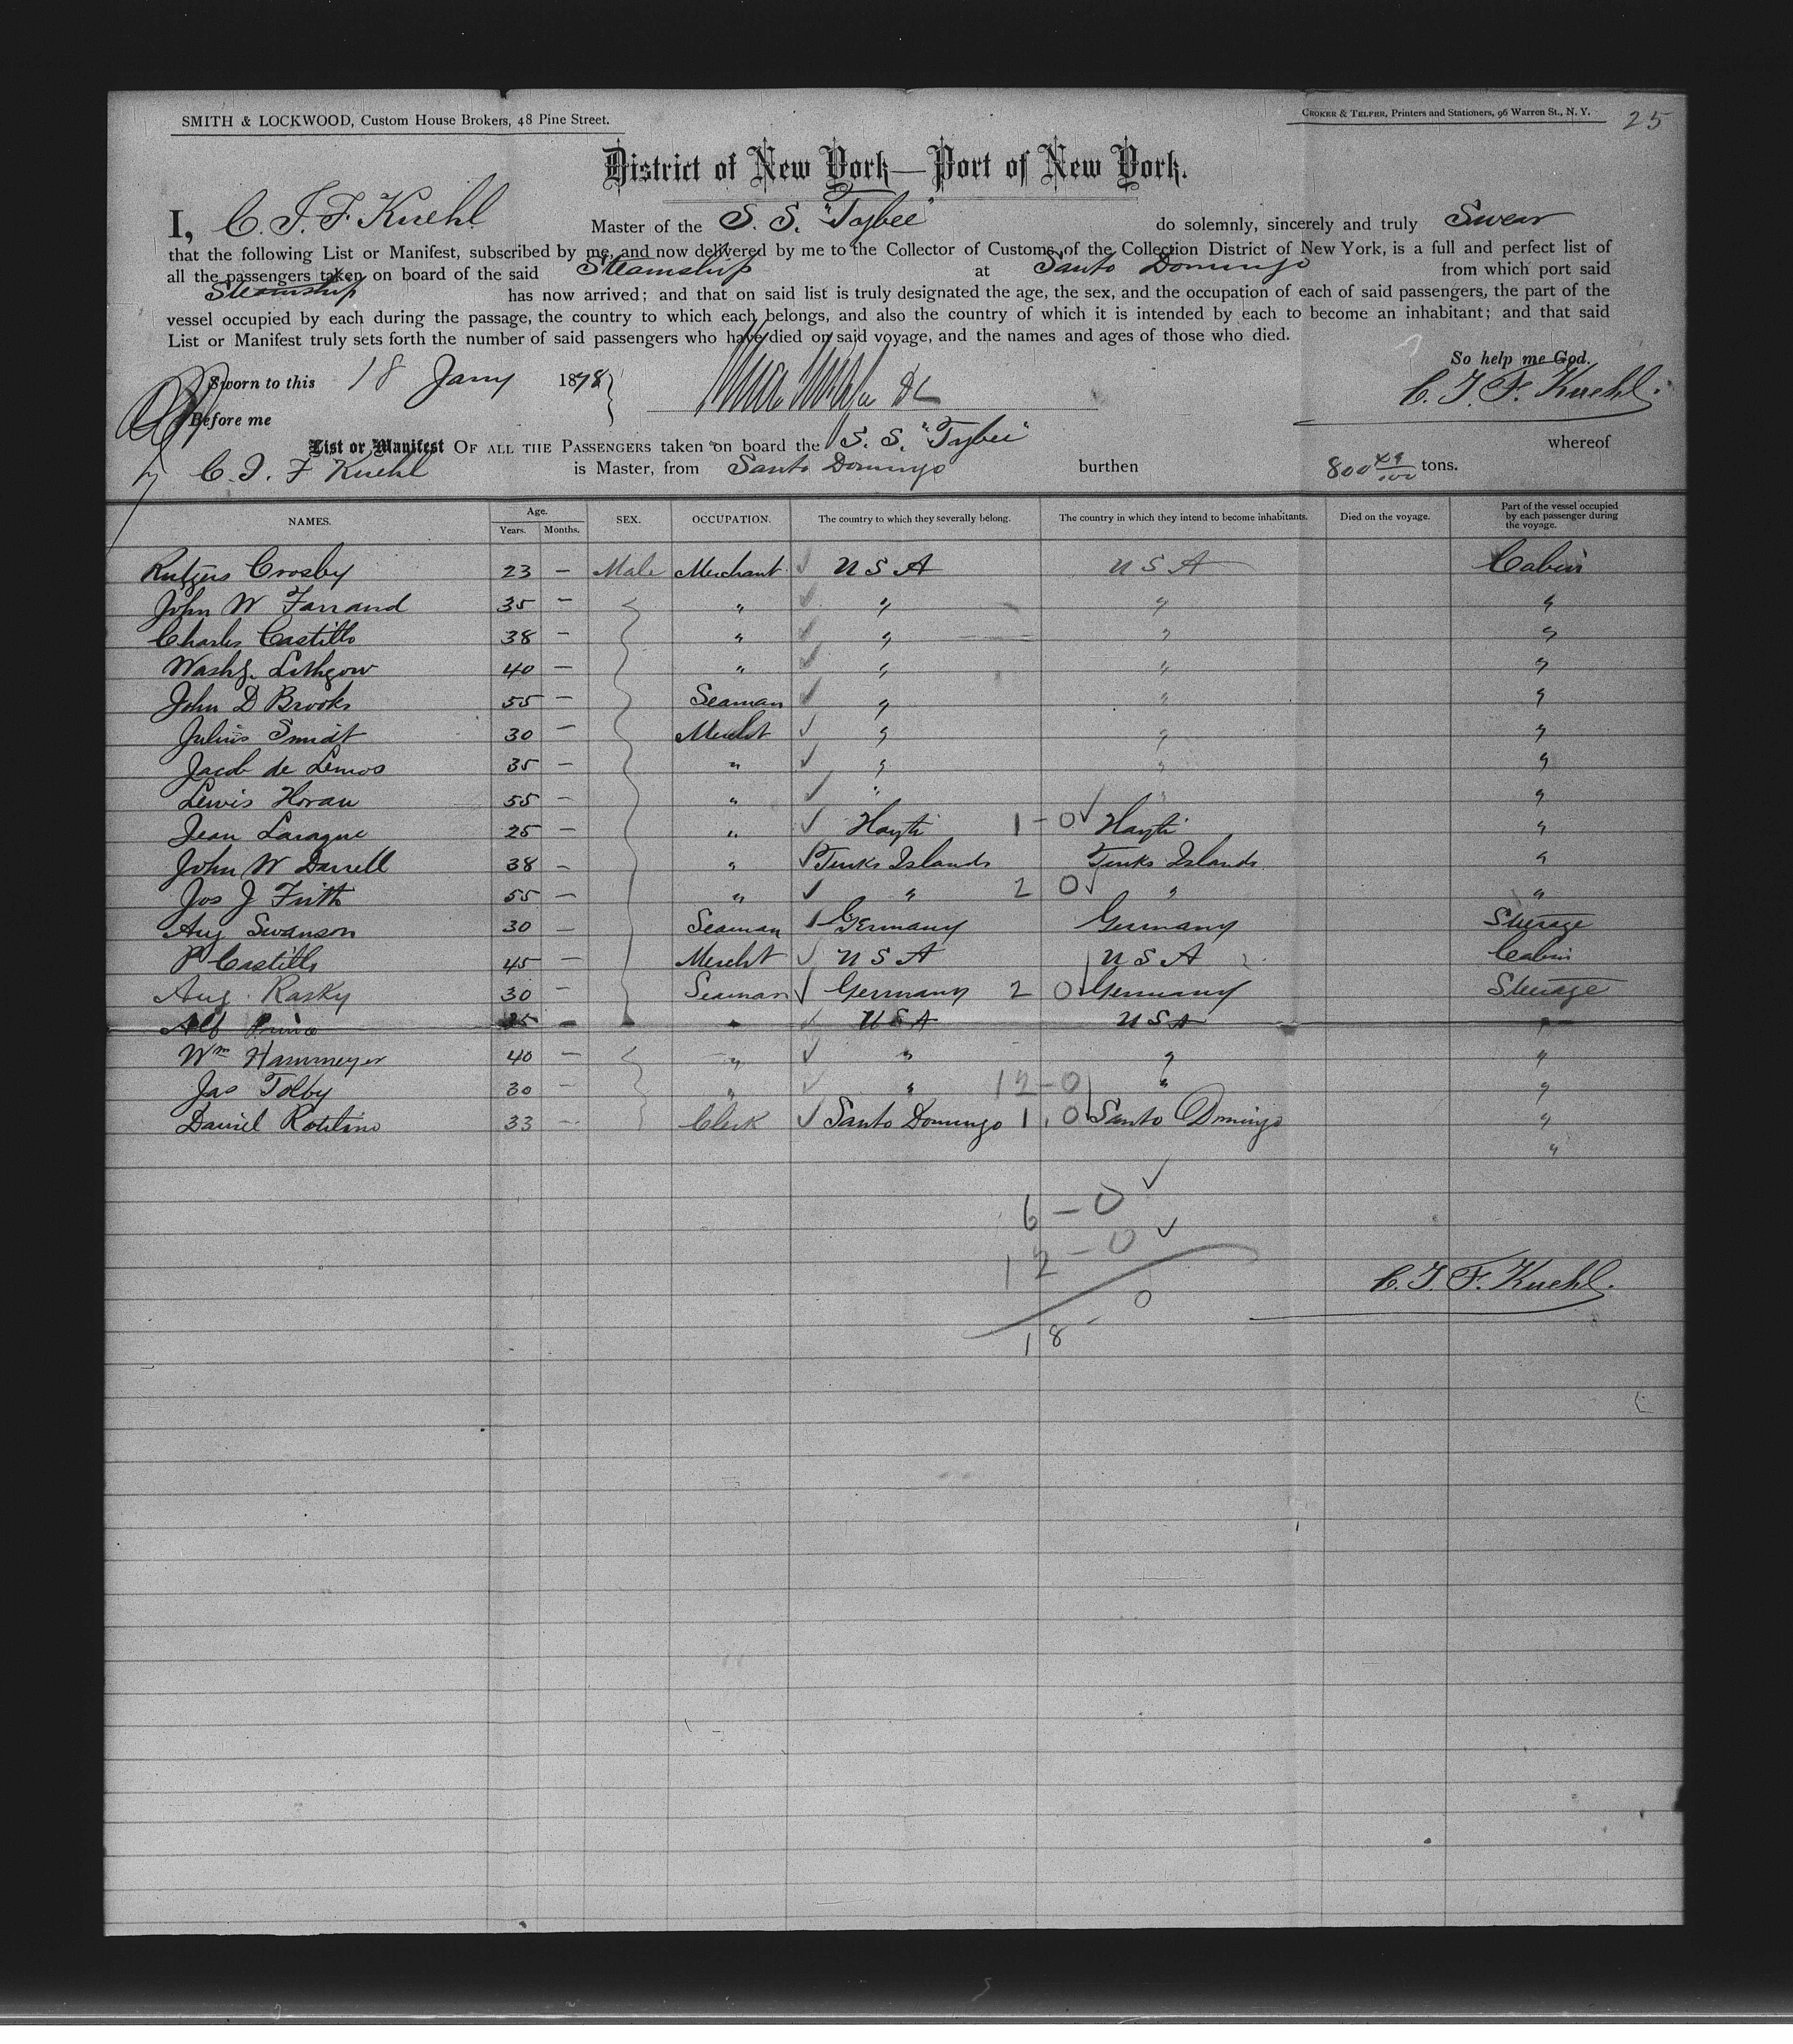 SMITH & LOCKWOOD, Custom House Brokers, 48 Pine Street.
CROKER & TELFER, Printers and Stationers, 96 Warren St., N. Y.
25
District of New York—Port of New York.
I, C. J. F. Kuehl Master of the S. S. "Tybee" do solemnly, sincerely and truly Swear
that the following List or Manifest, subscribed by me, and now delivered by me to the Collector of Customs of the Collection District of New York, is a full and perfect list of
all the passengers taken on board of the said Steamship at Santo Domingo from which port said
Steamship has now arrived; and that on said list is truly designated the age, the sex, and the occupation of each of said passengers, the part of the
vessel occupied by each during the passage, the country to which each belongs, and also the country of which it is intended by each to become an inhabitant; and that said
List or Manifest truly sets forth the number of said passengers who have died on said voyage, and the names and ages of those who died.
So help me God.
Sworn to this 18 Jany 1878
C. J. F. Kuehl.
Before me
List or Manifest OF ALL THE PASSENGERS taken on board the S. S. "Tybee" whereof
C. J. F Kuehl is Master, from Santo Domingo burthen 800 49/100 tons.
NAMES. Age. Years. Months. SEX. OCCUPATION. The country to which they severally belong. The country in which they intend to become inhabitants. Died on the voyage. Part of the vessel occupied by each passenger during the voyage.
Rutgers Crosby 23 — Male Merchant ✓ U S A U S A Cabin
John W Farrand 35 — " ✓ " " "
Charles Castillo 38 — " ✓ " " "
Washg. Lithgow 40 — " ✓ " " "
John D Brooks 55 — Seaman ✓ " " "
Julius Smidt 30 — Mercht ✓ " " "
Jacob de Lemos 35 — " ✓ " " "
Lewis Horan 55 — " ✓ " " "
Jean Laraque 25 — " ✓ Hayti 1-0✓ Hayti "
John W Darrell 38 — " ✓ Turks Islands Turks Islands "
Jos J Frith 55 — " ✓ " 2 0✓ " "
Aug Swanson 30 — Seaman ✓ Germany Germany Steerage
P Castillo 45 — Mercht ✓ U S A U S A Cabin
Aug. Rasky 30 — Seaman ✓ Germany 2 0 Germany Steerage
Alf Prince 25 — " ✓ U S A U S A "
Wm Hammeyer 40 — " ✓ " " "
Jas Tolby 30 — " ✓ " 12-0 " "
Daniel 33 — Clerk ✓ Santo Domingo 1, 0 Santo Domingo "
"
6-0✓
12-0✓
18-0
C. J. F. Kuehl.